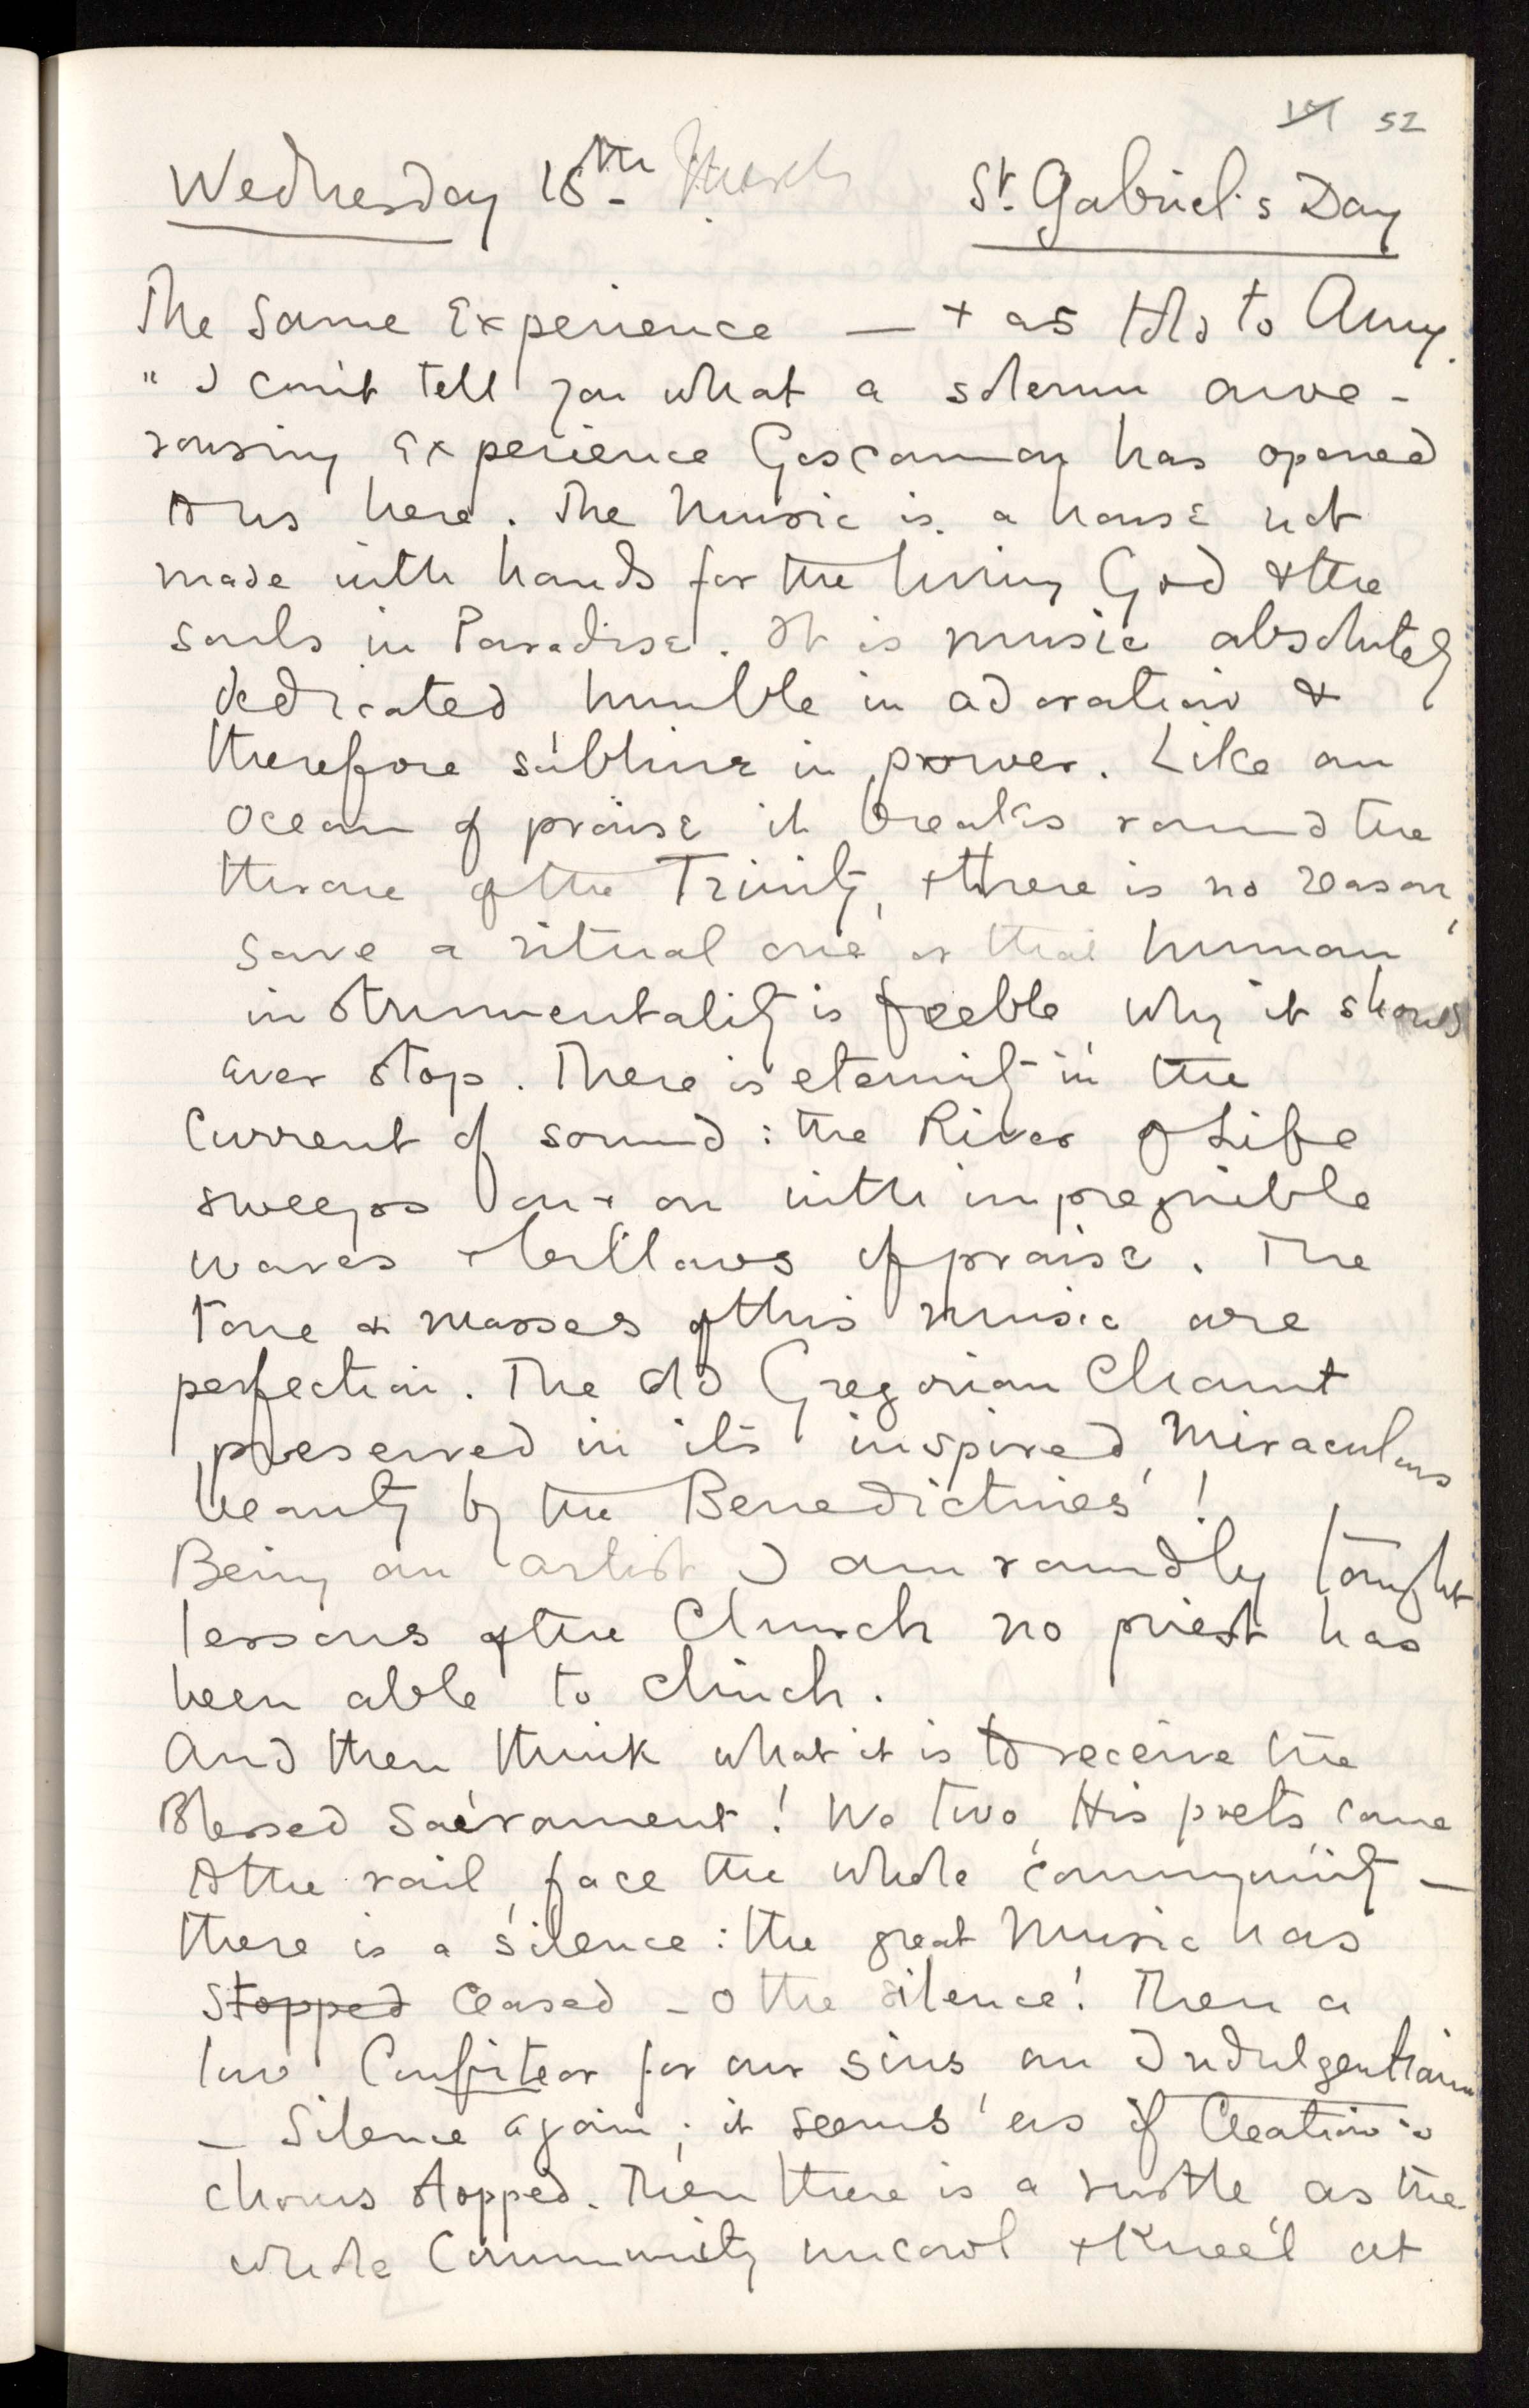 52
Wednesday 18th March St. Gabriel's Day
The same Experience — + as told to Amy.
" I can't tell you what a solemn awe-
rousing experience Goscannon has opened
to us here. The Music is a house not
made with hands for the living God & the
souls in Paradise. It is music absolutely
dedicated humble in adoration &
therefore sublime in power. Like an
ocean of praise it breaks round the
throne of the Trinity, + there is no reason,
save a ritual one, or that human
instrumentality is feeble, why it should
ever stop. There is eternity in the
Current of sound : the River of Life
sweeps on + on with impregnible
waves + billows of praise. The
tone & masses of this music are
perfection. The old Gregorian Chaunt
preserved in its inspired, miraculous
beauty by the Benedictines !
Being an artist I am roundly taught
lessons of the Church no priest has
been able to clinch.
And then think what it is to receive the
Blessed Sacrament ! We two, His poets, come
to the rail, face the whole community —
there is a silence : the great Music has
stopped ceased – O the silence ! Then a
low Confiteor for our sins, an Indulgentiam
— Silence again ; it seems as if Creation's
chorus stopped. Then there is a rustle, as the
whole Community uncowl + kneel at